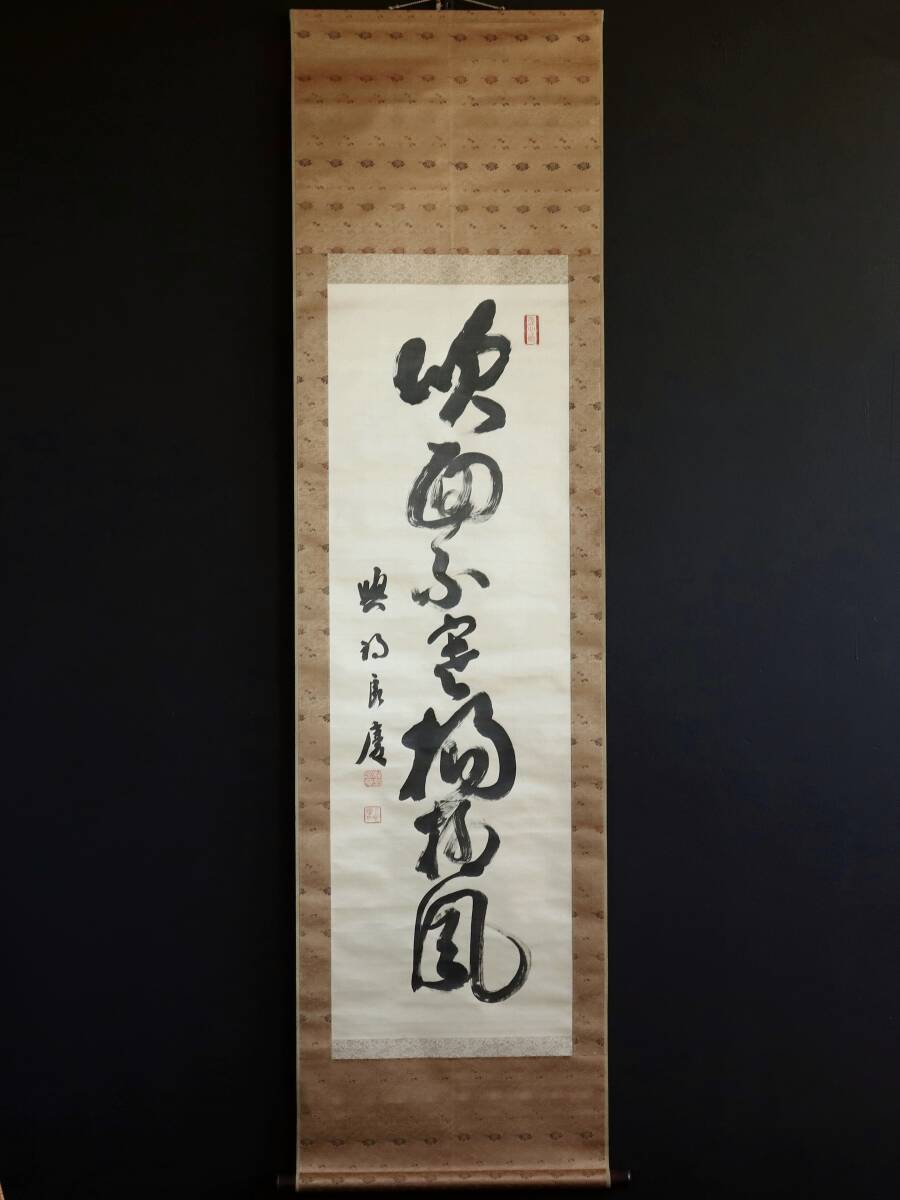 吹面不寒楊柳風
興福良慶